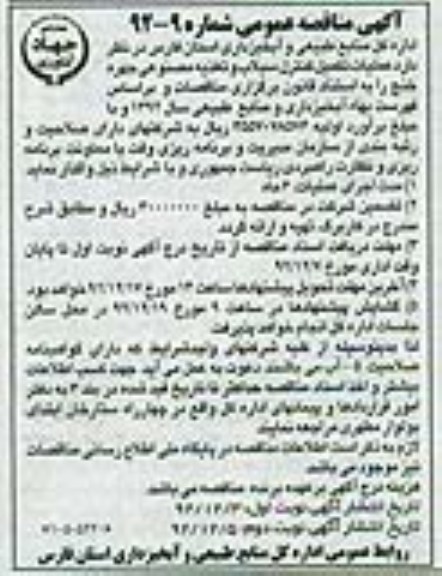 آگهی مناقصه عمومی شماره ۹-۹۲
جهاد
اداره کل منابع طبیعی و آبخیزداری استان فارس در نظر
دارد عملیات تکمیل کنترل سیلاب و تغذیه مصنوعی
خنج را به استناد قانون برگزاری مناقصات و براساس
فهرست بهاء آبخیزداری و منابع طبیعی سال ۱۳۹۲ و با
مبلغ برآورد اولیه ریال به شرکتهای دارای صلاحیت و
رتبه بندی از سازمان مدیریت و برنامه ریزی وقت یا معاونت برنامه
ریزی و نظارت راهبردی ریاست جمهوری و با شرایط ذیل واگذار نماید
۱) مدت اجرای عملیات ماه
۲) تضمین شرکت در مناقصه به مبلغ ریال و مطابق شرح
مندرج در کاربرگ تهیه و ارائه گردد.
۳) مهلت دریافت اسناد مناقصه از تاریخ درج آگهی نوبت اول تا پایان
وقت اداری مورخ
۴) آخرین مهلت تحویل پیشنهادها ساعت ۱۴ مورخ خواهد بود.
۵) گشایش پیشنهادها در ساعت ۹ مورخ ۹۲/۱۲/۱۹ در محل سالن
جلسات اداره کل انجام خواهد پذیرفت.
لذا بدینوسیله از کلیه شرکتهای واجدشرایط که دارای گواهینامه
صلاحیت ۵ - آب می باشند دعوت به عمل می آید جهت کسب اطلاعات
بیشتر و اخذ اسناد مناقصه حداکثر تا تاریخ قید شده در بند ۳ به دفتر
امور قراردادها و پیمانهای اداره کل واقع در چهارراه ستارخان ابتدای
بولوار مطهری مراجعه نمایند.
لازم به ذکر است اطلاعات مناقصه در پایگاه ملی اطلاع رسانی مناقصات
نیز موجود می باشد.
هزینه درج آگهی بر عهده برنده مناقصه می باشد.
تاریخ انتشار آگهی نوبت اول: ۹۲/۱۲/۳
تاریخ انتشار آگهی نوبت دوم: ۹۲/۱۲/۵
روابط عمومی اداره کل منابع طبیعی و آبخیزداری استان فارس